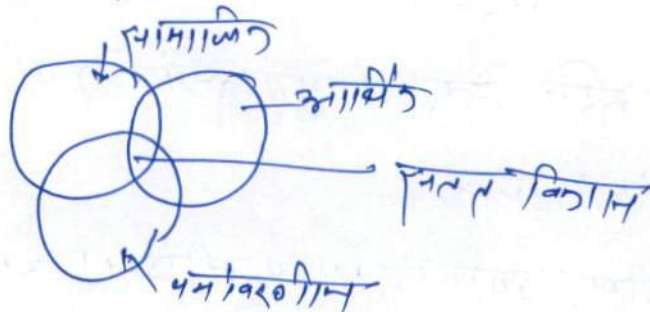 सामाजिक
आर्थिक
सतत विकास
पर्यावरणीय